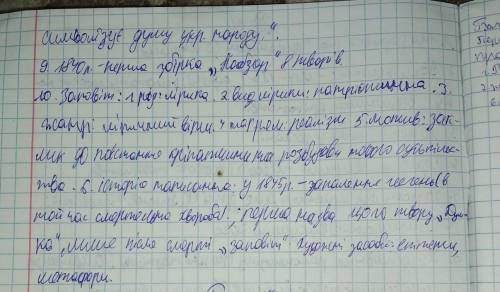 символізує душу укр. народу.".
9. 1840р.- перша збірка „Кобзар" 8 творів
10. Заповіт: 1 род: лірика. 2 вид лірики: патріотична. 3.
жанр: ліричний вірш. 4 напрям: реалізм 5 мотив: зак-
лик до повстання кріпаків та розбудови нового суспільс-
тва. 6. історія написання: у 1845р - запалення легень (в
той час смертельна хвороба).; перша назва цього твору „Ду-
ка", лише після смерті „Заповіт" Художні засоби: епітети,
метафори.